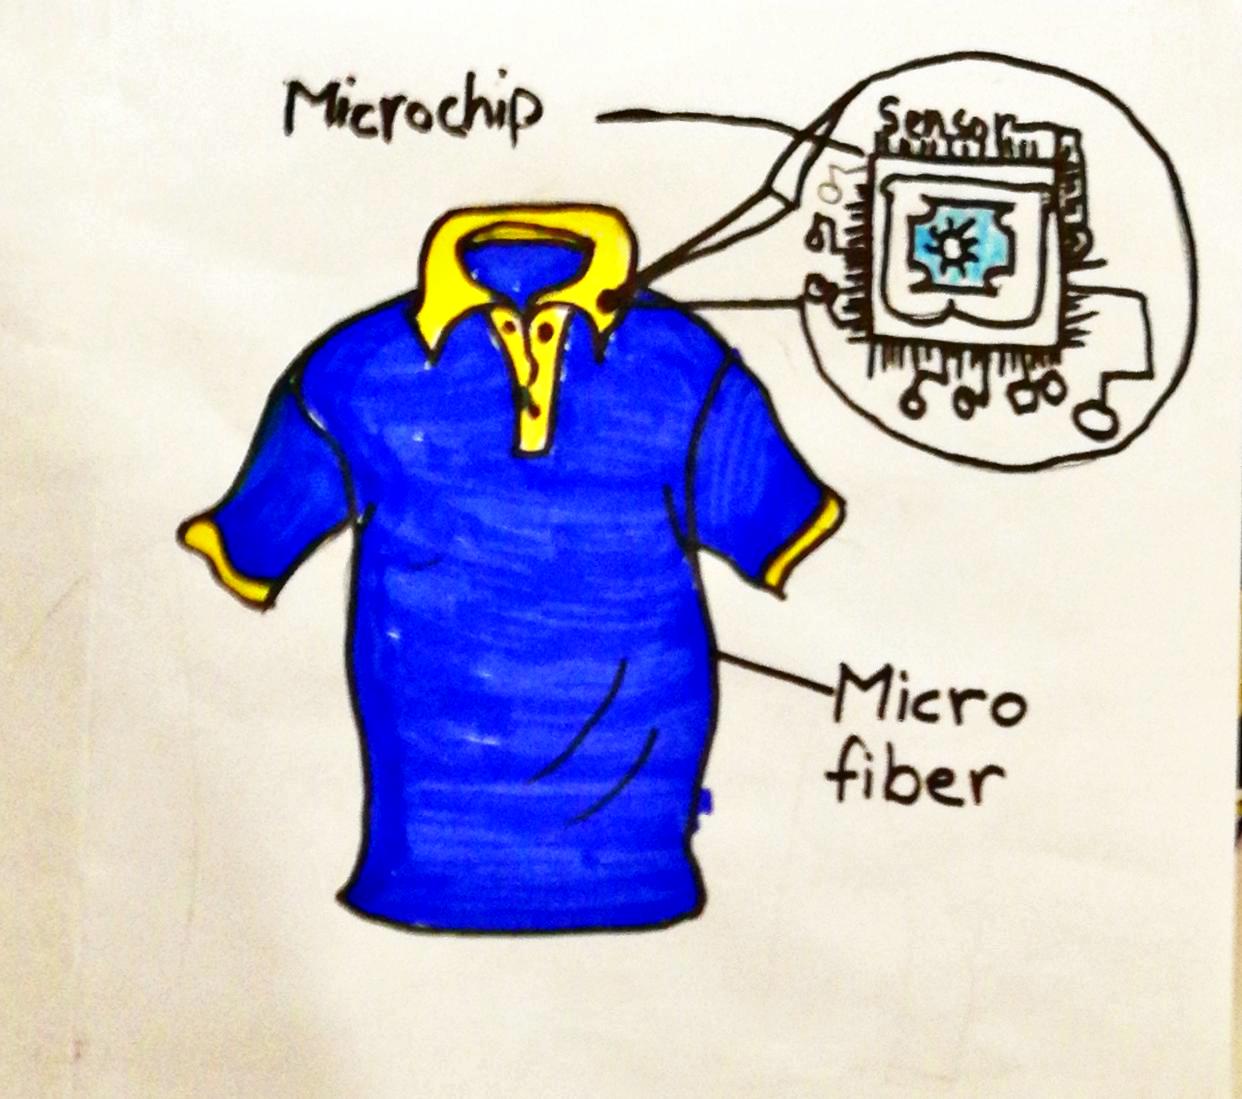 Microchip
Sensor
Micro
fiber